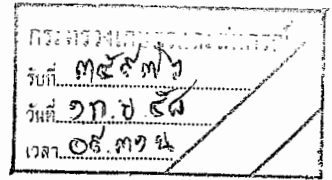 กระทรวงเกษตรและสหกรณ์
รับที่ ๓๕๙๗๖
วันที่ ๑ ก.ย. ๕๘
เวลา ๐๙.๓๑ น